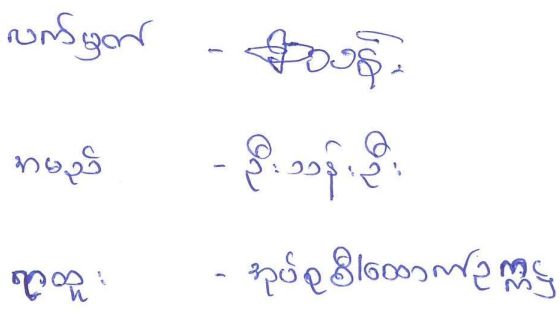 လက်မှတ် -
အမည် - ဦးသန်းဦး
ရာထူး - အုပ်စုစီ/ထောက်ဥက္ကဋ္ဌ